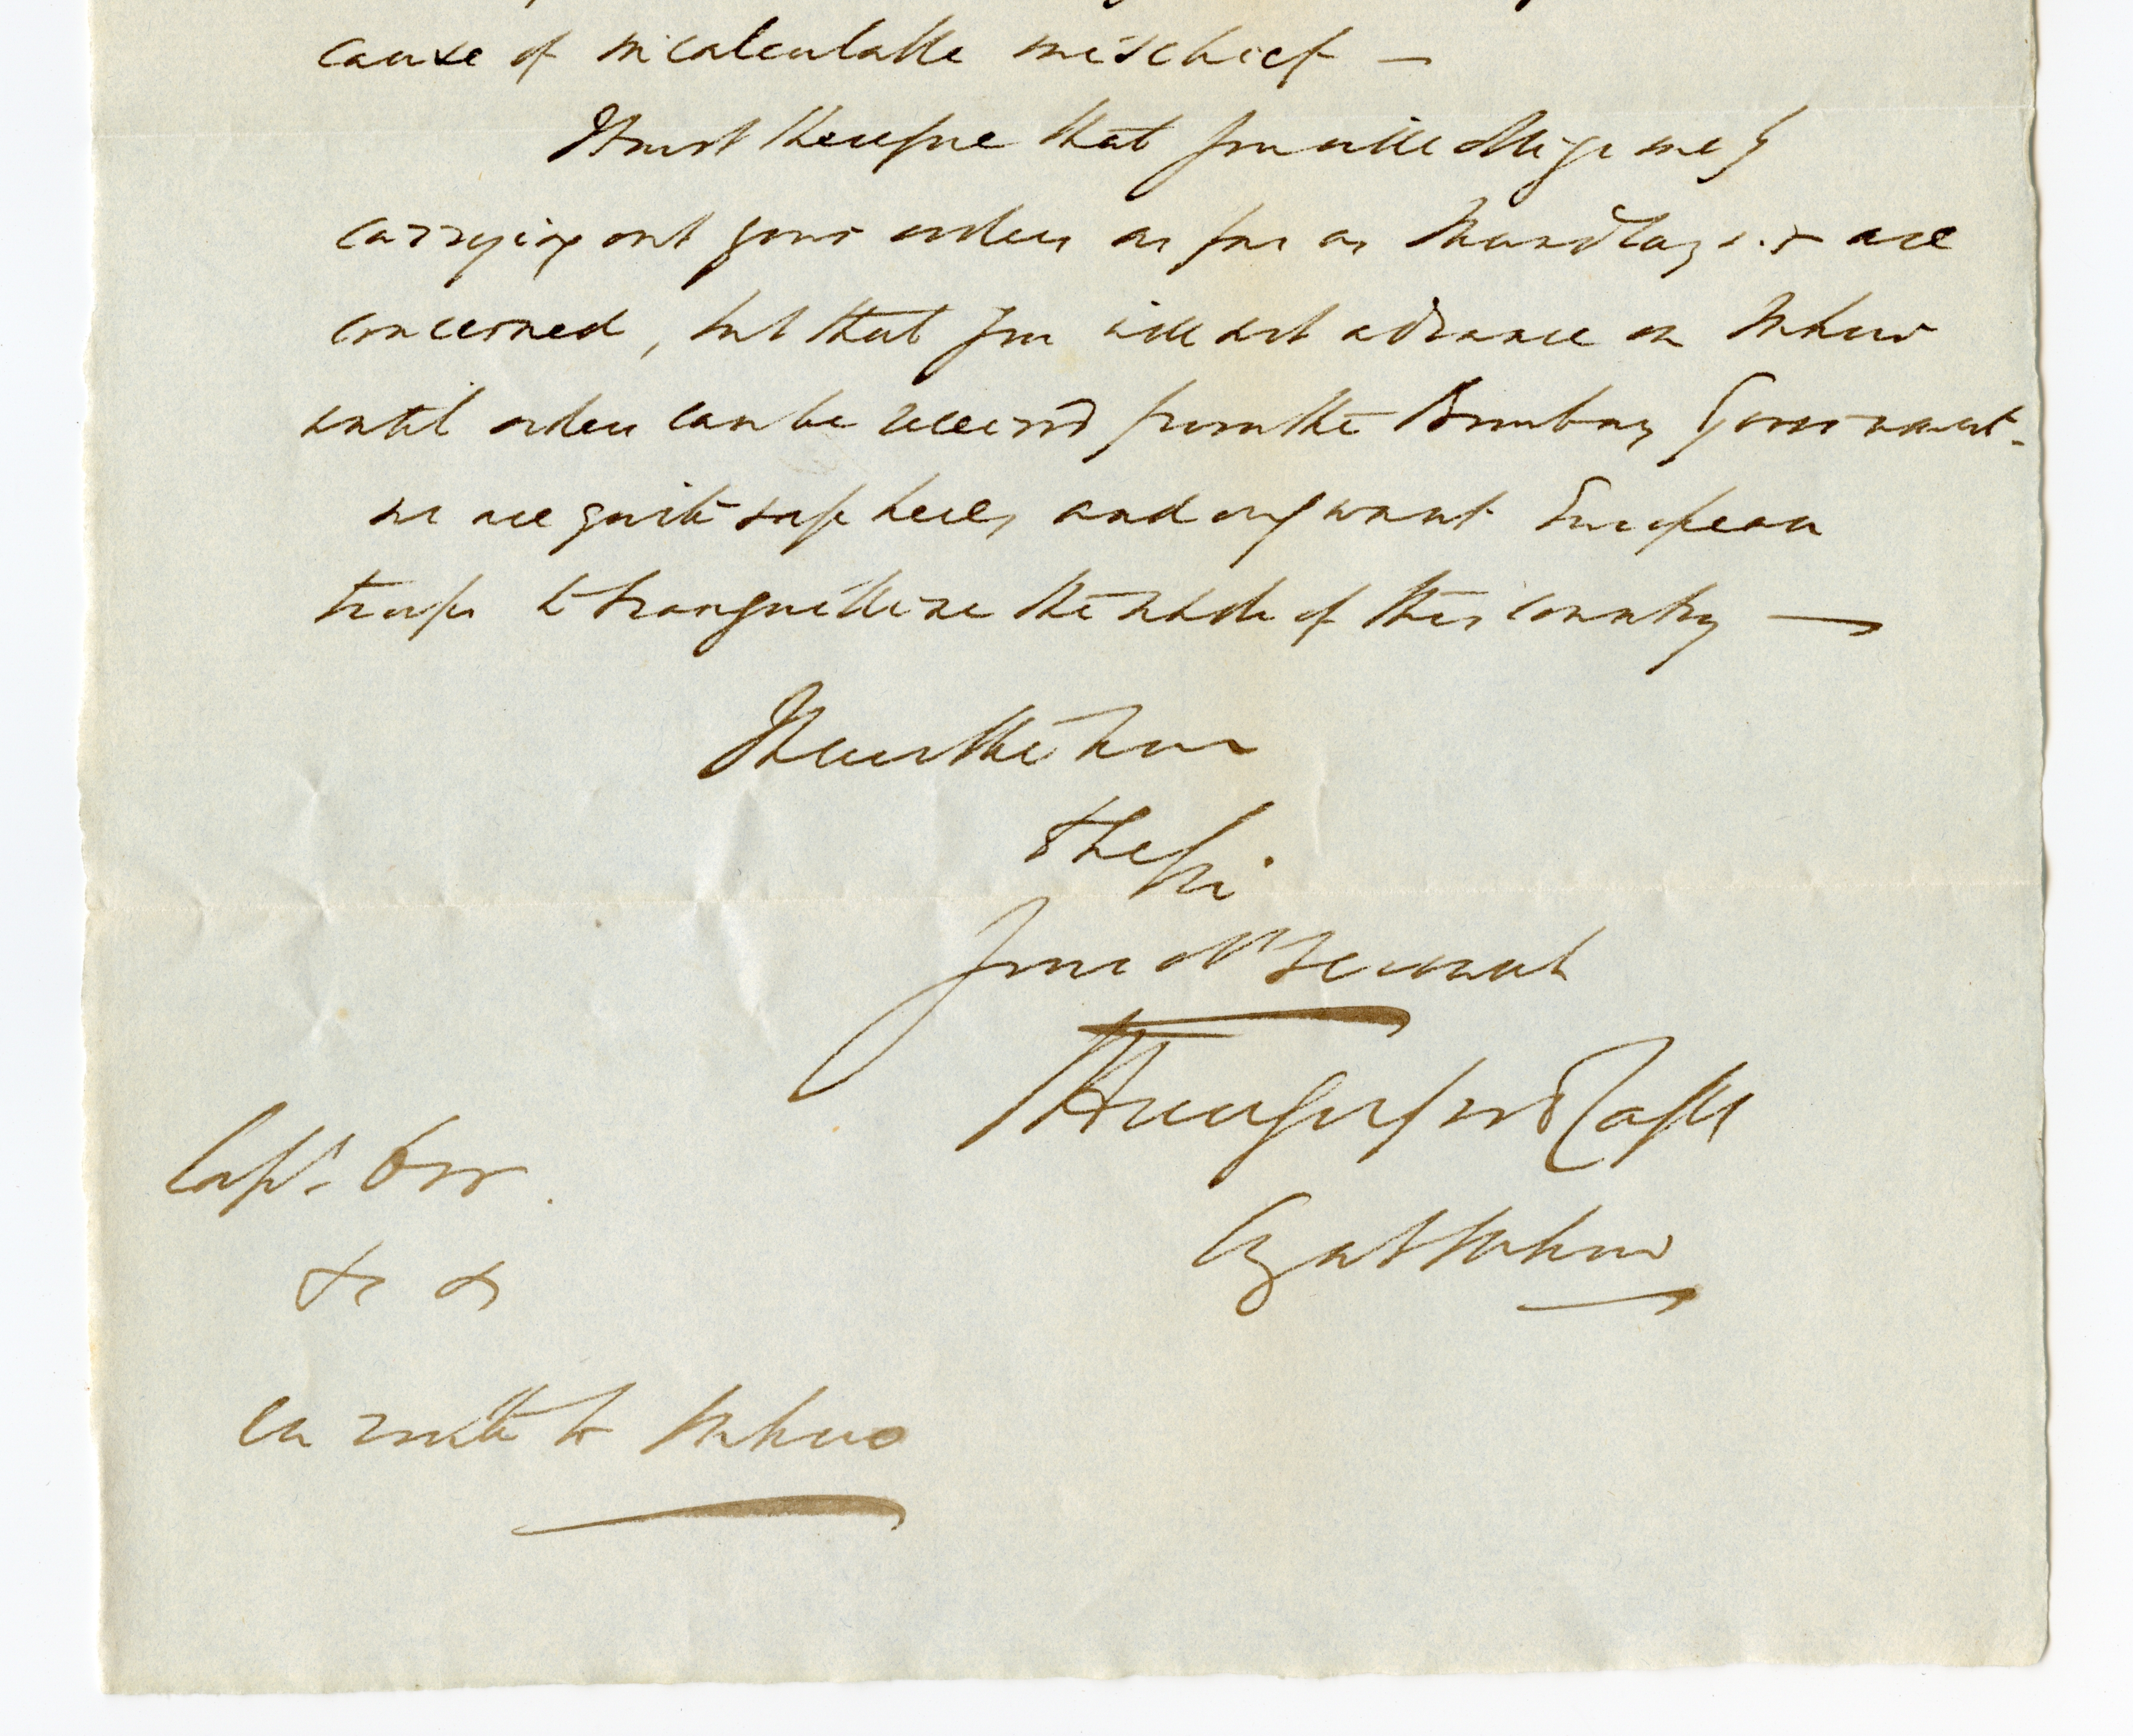 cause of incalculable mischief —
I trust therefore that you will oblige me by
carrying out your orders as far as Mundlaysir are
concerned, but that you will not advance on Mhow
until orders can be received from the Bombay Government.
We are quite safe here, and only want European
troops to tranquillize the whole of this country —
I have the honor
to be Sir
Your Obt Servant
T Hungerford Capt
Comg at Mhow
Capt. Orr.
&c &c
en route to Mhow